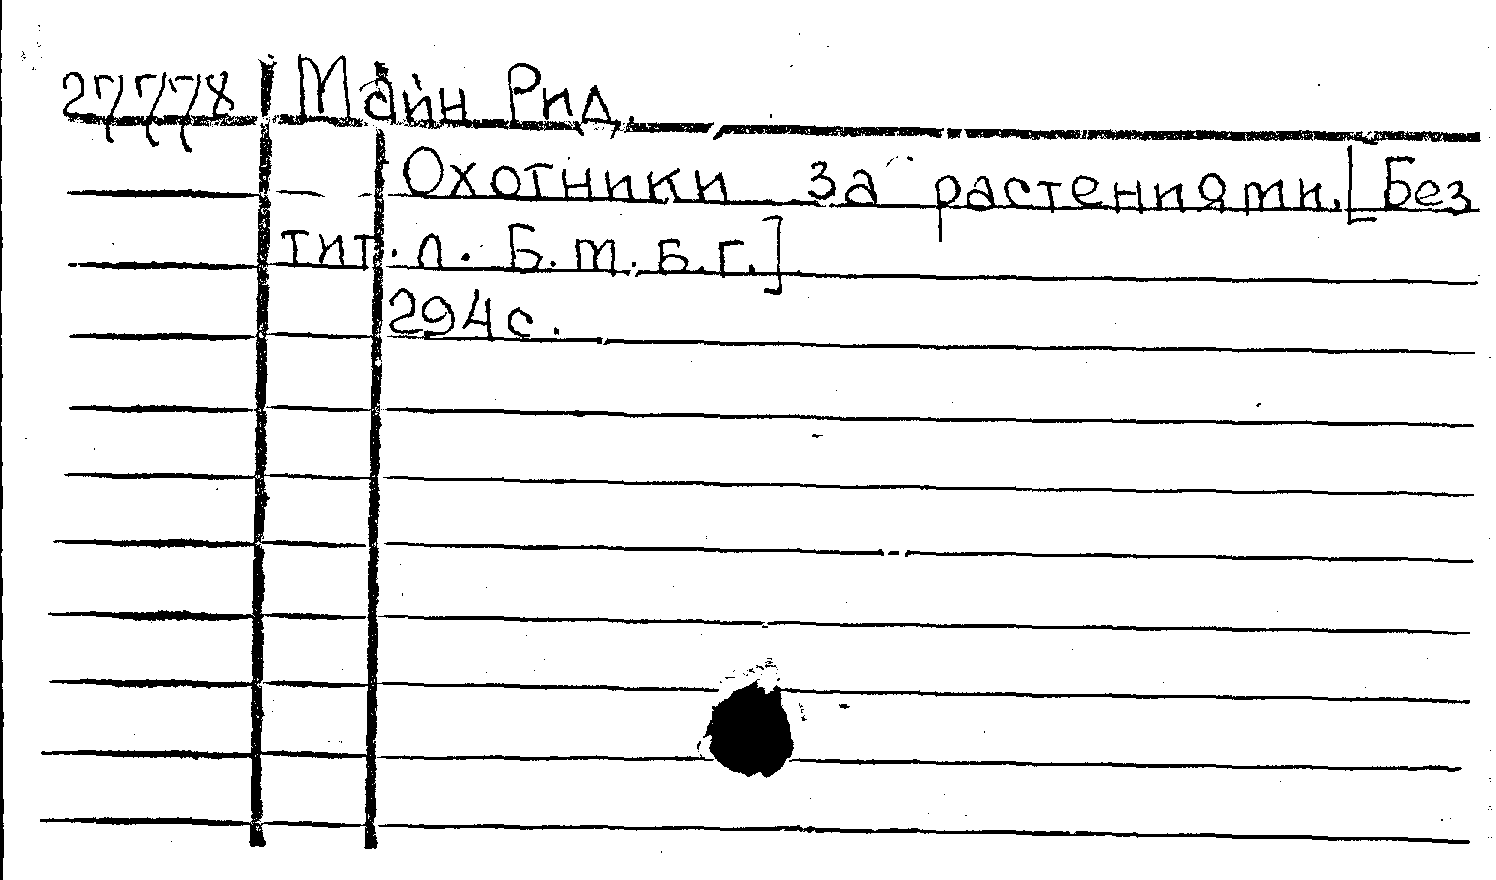 27778 Майн Рид.
Охотники за растениями. [Без
тит. л. Б. м. Б. г.]
294 с.